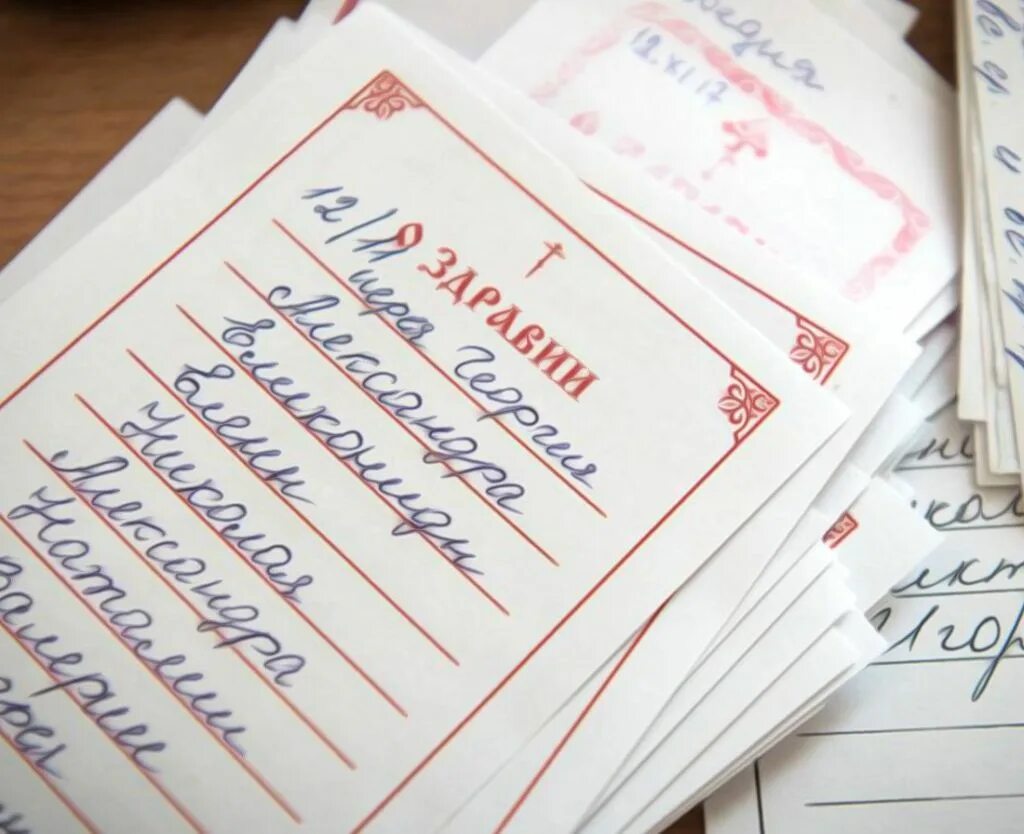 12/11
О ЗДРАВИИ
иерея Георгия
Александра
Еликониды
Елены
Николая
Александра
Наталии
Валерии
12.XI 17
Игор